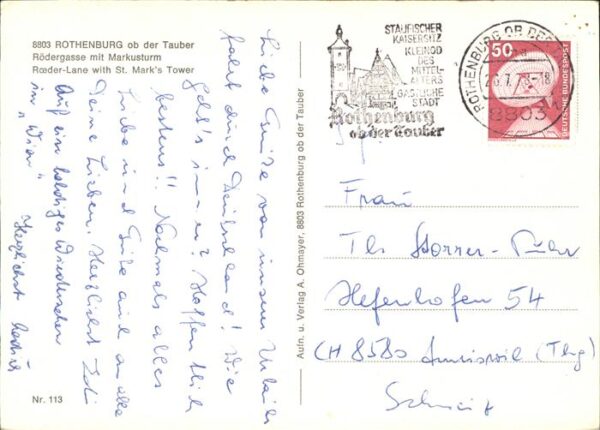 8803 ROTHENBURG ob der Tauber
Rödergasse mit Markusturm
Rœder-Lane with St. Mark's Tower
Liebe Grüße von unserer Urlaubs
fahrt durch Deutschland! Wie
geht's immer? Hoffentlich
bestens!! Nochmals alles
Liebe und Gute auch an alle
Deine Lieben. Herzlichst
Auf ein baldiges Wiedersehen
in "Wien"
Herzlichst
Nr. 113
Aufn. u. Verlag A. Ohmayer, 8803 Rothenburg ob der Tauber
STAUFISCHER
KAISERSITZ
KLEINOD
DES
MITTEL-
ALTERS
GASTLICHE
STADT
Rothenburg
ob der Tauber
ROTHENBURG OB DER
8803
50
DEUTSCHE BUNDESPOST
Frau
Hefenhofen 54
CH 8580 Amriswil (Thg)
Schweiz